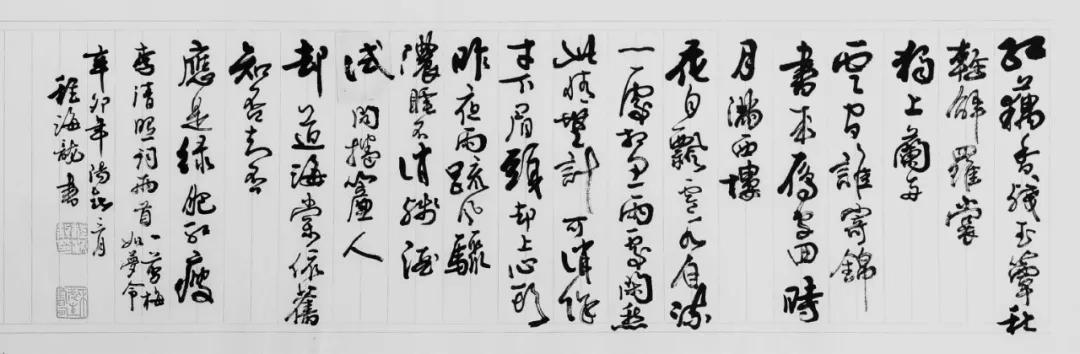 紅藕香殘玉簟秋
輕解羅裳
獨上蘭舟
雲中誰寄錦
書來雁字回時
月滿西樓
花自飄零水自流
一處相思兩處閑愁
此情無計可消除
才下眉頭却上心頭
昨夜雨疏風驟
濃睡不消殘酒
試問捲簾人
却道海棠依舊
知否知否
應是綠肥紅瘦
李清照詞兩首一剪梅
如夢令
辛卯年月
程海龍書